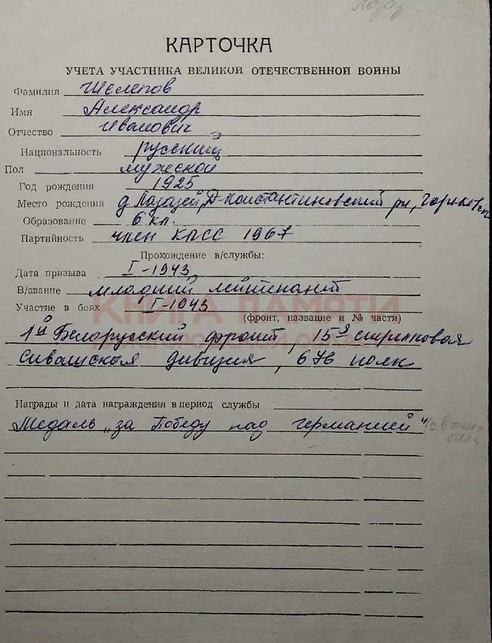 КАРТОЧКА
УЧЕТА УЧАСТНИКА ВЕЛИКОЙ ОТЕЧЕСТВЕННОЙ ВОЙНЫ
Фамилия Шелепов
Имя Александр
Отчество Иванович
Национальность русский
Пол мужской
Год рождения 1925
Место рождения д. Лазазей, Д-Константиновский рн, Горьковск
Образование 6 кл.
Партийность член КПСС 1967
Прохождение в/службы:
Дата призыва I-1943
В/звание младший лейтенант
Участие в боях I-1943
(фронт, название и № части)
КНИГА ПАМЯТИ
1й Белорусский фронт, 15я стрелковая
Сивашская дивизия, 676 полк
Награды и дата награждения в период службы
Медаль „за Победу над германией"